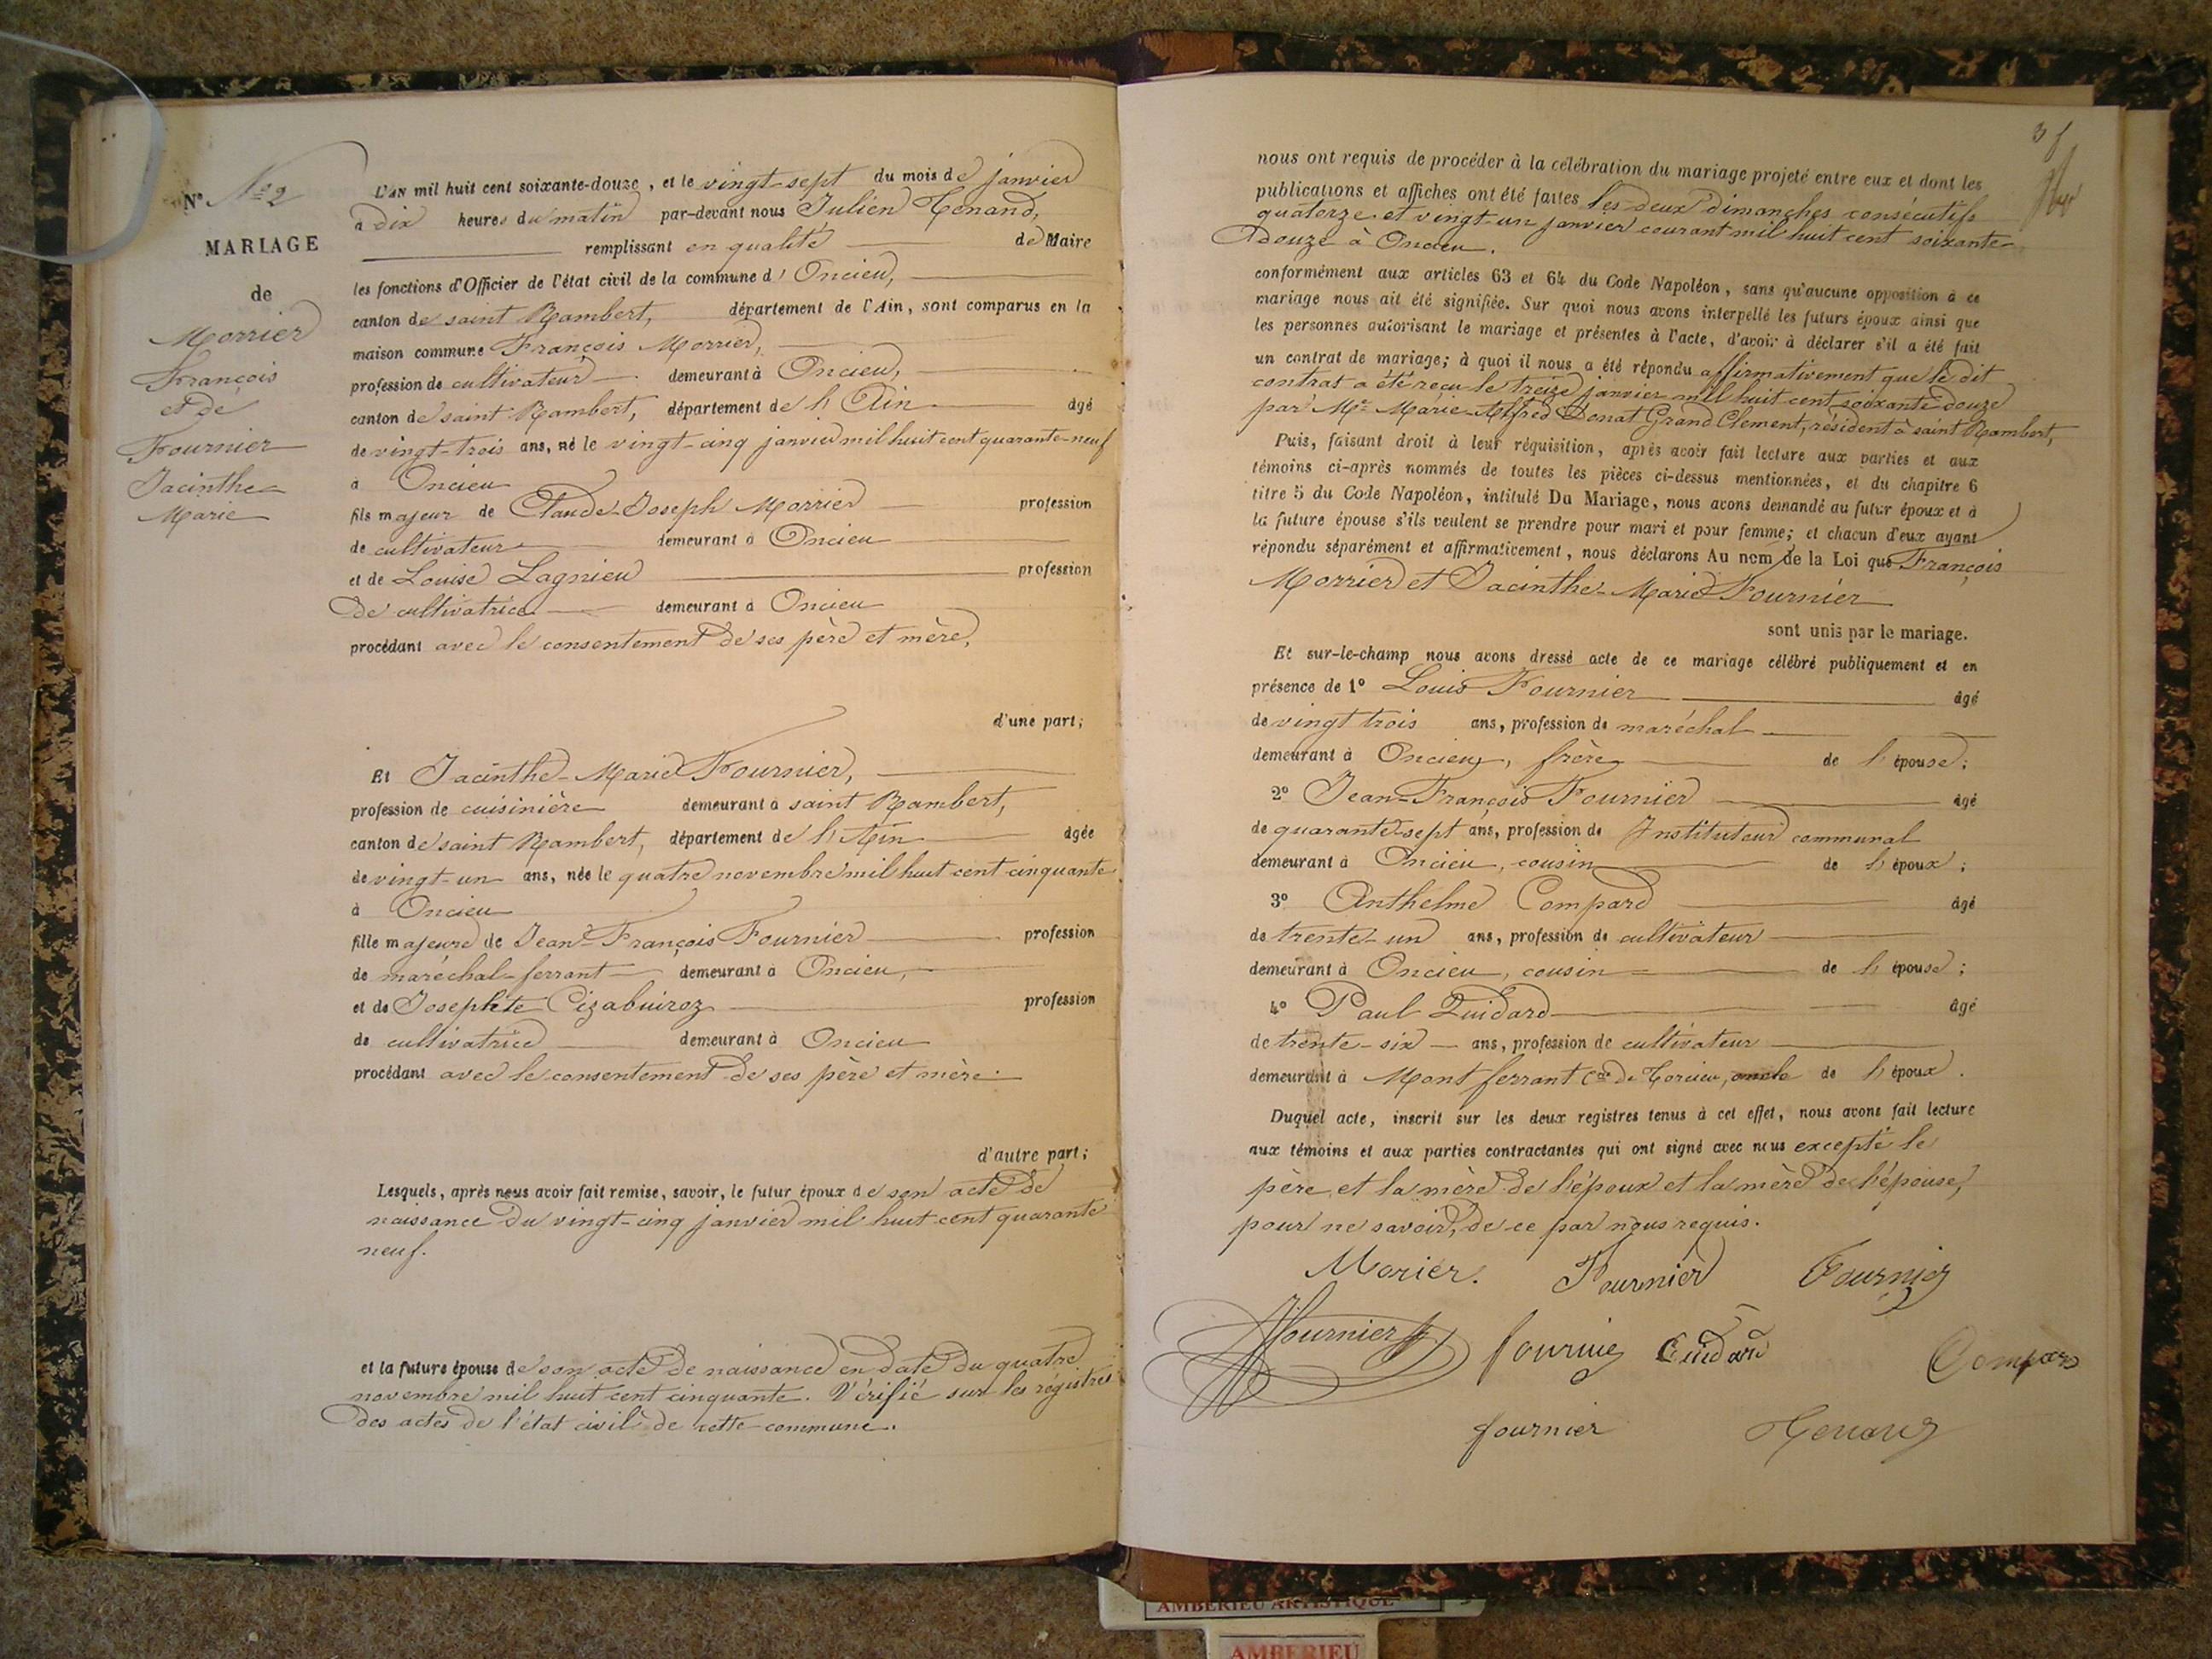 Nº Nº 2
MARIAGE
de
Morrier
François
et de
Fournier
Jacinthe
Marie
L'AN mil huit cent soixante-douze, et le vingt-sept du mois de janvier
à dix heures du matin par-devant nous Julien Tenand,
remplissant en qualité de Maire
les fonctions d'Officier de l'état civil de la commune d'Oncieu,
canton de saint Rambert, département de l'Ain, sont comparus en la
maison commune François Morrier,
profession de cultivateur demeurant à Oncieu,
canton de saint Rambert, département de l'Ain âgé
de vingt-trois ans, né le vingt-cinq janvier mil huit cent quarante-neuf
à Oncieu
fils majeur de Claude-Joseph Morrier profession
de cultivateur demeurant à Oncieu
et de Louise Lagnieu profession
de cultivatrice demeurant à Oncieu
procédant avec le consentement de ses père et mère,
d'une part;
Et Jacinthe-Marie Fournier,
profession de cuisinière demeurant à saint Rambert,
canton de saint Rambert, département de l'Ain âgée
de vingt-un ans, née le quatre novembre mil huit cent cinquante
à Oncieu
fille majeure de Jean-François Fournier profession
de maréchal-ferrant demeurant à Oncieu,
et de Josephte Cizabuiroz profession
de cultivatrice demeurant à Oncieu
procédant avec le consentement de ses père et mère.
d'autre part;
Lesquels, après nous avoir fait remise, savoir, le futur époux de son acte de
naissance du vingt-cinq janvier mil huit cent quarante
neuf.
et la future épouse de son acte de naissance en date du quatre
novembre mil huit cent cinquante. Vérifié sur les régistres
des actes de l'état civil de cette commune.
3
nous ont requis de procéder à la célébration du mariage projeté entre eux et dont les
publications et affiches ont été faites les deux dimanches consécutifs
quatorze et vingt-un janvier courant mil huit cent soixante-
douze à Oncieu.
conformément aux articles 63 et 64 du Code Napoléon, sans qu'aucune opposition à ce
mariage nous ait été signifiée. Sur quoi nous avons interpellé les futurs époux ainsi que
les personnes autorisant le mariage et présentes à l'acte, d'avoir à déclarer s'il a été fait
un contrat de mariage; à quoi il nous a été répondu affirmativement que le dit
contrat a été reçu le treize janvier mil huit cent soixante douze
par Me Marie-Alfred Donat Grand Clement, résident à saint Rambert,
Puis, faisant droit à leur réquisition, après avoir fait lecture aux parties et aux
témoins ci-après nommés de toutes les pièces ci-dessus mentionnées, et du chapitre 6
titre 5 du Code Napoléon, intitulé Du Mariage, nous avons demandé au futur époux et à
la future épouse s'ils veulent se prendre pour mari et pour femme; et chacun d'eux ayant
répondu séparément et affirmativement, nous déclarons Au nom de la Loi que François
Morrier et Jacinthe-Marie Fournier
sont unis par le mariage.
Et sur-le-champ nous avons dressé acte de ce mariage célébré publiquement et en
présence de 1º Louis Fournier âgé
de vingt trois ans, profession de maréchal
demeurant à Oncieu, frère de l'épouse;
2º Jean-François Fournier âgé
de quarante-sept ans, profession de Instituteur communal
demeurant à Oncieu, cousin de l'époux;
3º Anthelme Compard âgé
de trente-un ans, profession de cultivateur
demeurant à Oncieu, cousin de l'épouse;
4º Paul Quidard âgé
de trente-six ans, profession de cultivateur
demeurant à Mont ferrant Cne de Torcieu, oncle de l'époux.
Duquel acte, inscrit sur les deux registres tenus à cet effet, nous avons fait lecture
aux témoins et aux parties contractantes qui ont signé avec nous excepté le
père et la mère de l'époux et la mère de l'épouse,
pour ne savoir, de ce par nous requis.
Morier. Fournier Fournier
Fournier Cuidard Compard
fournier Tenand
AMBERIEU ARTISTIQUE
AMBERIEU